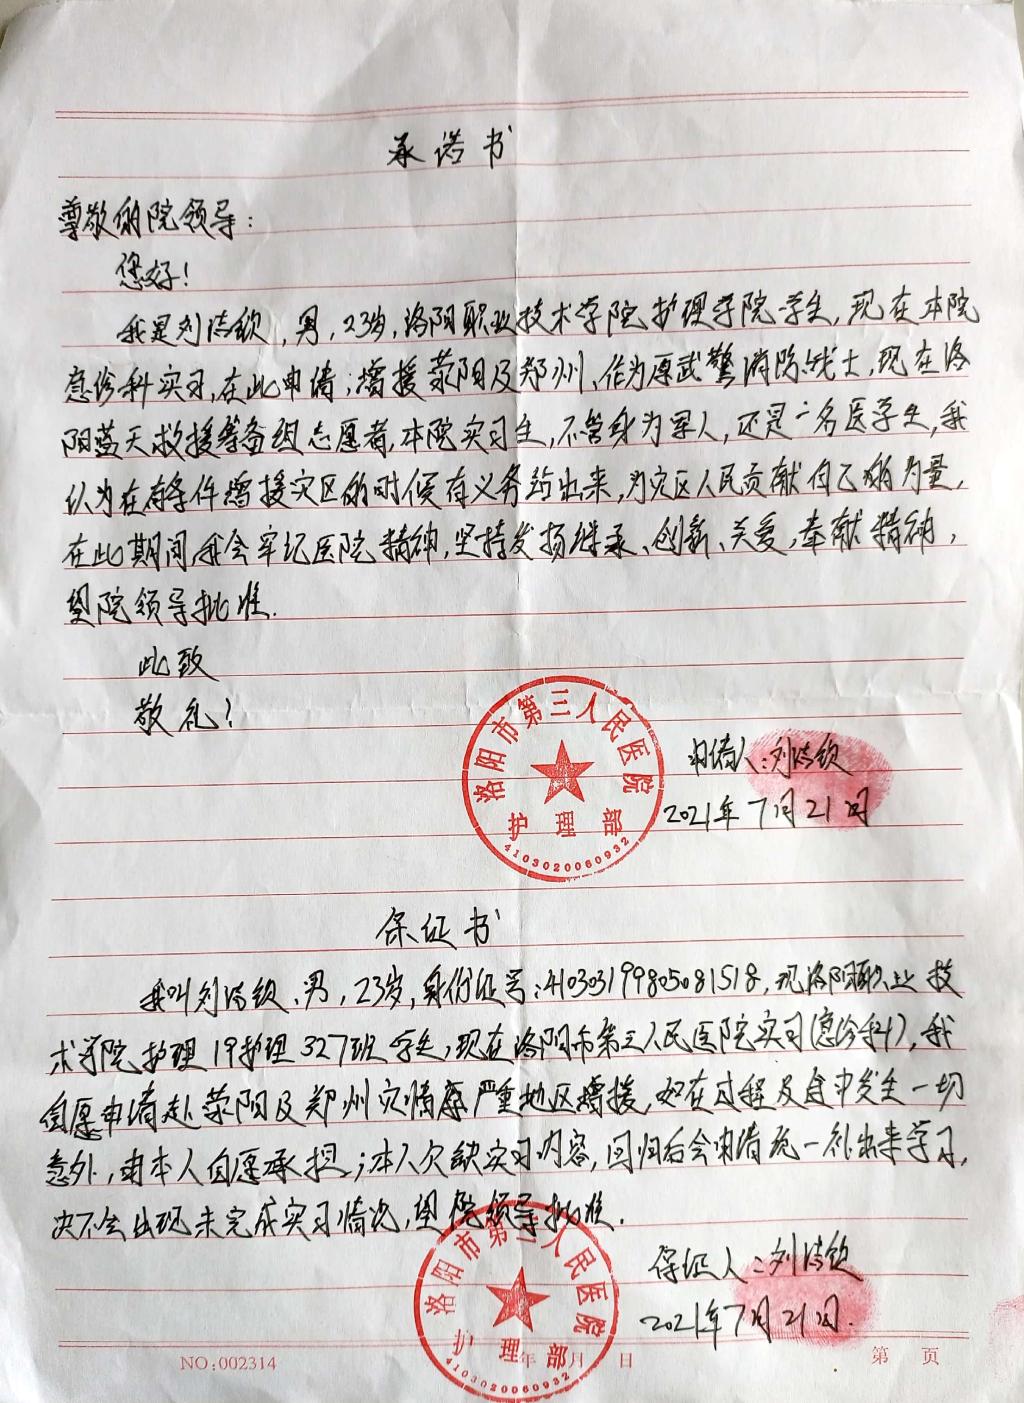 承诺书
尊敬的院领导：
您好！
我是刘浩钦，男，23岁，洛阳职业技术学院护理学院学生，现在本院
急诊科实习，在此申请；增援荥阳及郑州、作为原武警消防战士，现在洛
阳蓝天救援筹备组志愿者，本院实习生，不管身为军人，还是一名医学生，我
认为在有条件增援灾区的时候有义务站出来，为灾区人民贡献自己的力量，
在此期间，我会牢记医院精神，坚持发扬继承、创新、关爱，奉献精神，
望院领导批准.
此致
敬礼！
洛阳市第三人民医院
护理部
4103020060932
申请人：刘浩钦
2021年7月21日
保证书
我叫刘浩钦、男，23岁，身份证号：410303199805081518，现洛阳职业技
术学院护理19护理327班学生，现在洛阳市第三人民医院实习（急诊科），我
自愿申请赴荥阳及郑州灾情严重地区增援，如在过程及途中发生一切
意外，由本人自愿承担；本人欠缺实习内容，回归后会申请统一补出来学习，
决不会出现未完成实习情况，望院领导批准.
保证人：刘浩钦
2021年7月21日.
洛阳市第三人民医院
护理部
4103020060932
NO:002314 年 月 日 第 页